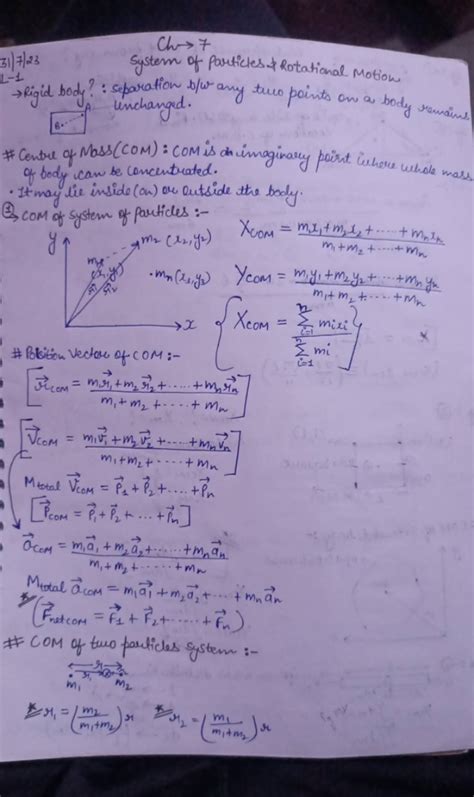 Ch → 7
31/7/23 System of Particles & Rotational Motion
L-1
→ Rigid body? : Separation b/w any two points on a body remains unchanged.
A
B
# Centre of Mass (COM) : COM is an imaginary point where whole mass
of body can be concentrated.
• It may lie inside (on) or outside the body.
① COM of System of Particles :-
y
m₂ (x₂, y₂)
m₁
(x₁, y₁)
r⃗₁ r⃗₂
• mₙ (x₁, y₂)
x
X_COM = (m₁x₁ + m₂x₂ + ..... + mₙxₙ) / (m₁ + m₂ + .... + mₙ)
Y_COM = (m₁y₁ + m₂y₂ + ... + mₙyₙ) / (m₁ + m₂ + .... + mₙ)
{ X_COM = (Σⁿᵢ₌₁ mᵢxᵢ) / (Σⁿᵢ₌₁ mᵢ) }
# Position Vector of COM :-
[ r⃗_COM = (m₁r⃗₁ + m₂r⃗₂ + ..... + mₙr⃗ₙ) / (m₁ + m₂ + .... + mₙ) ]
[ V⃗_COM = (m₁v⃗₁ + m₂v⃗₂ + ..... + mₙv⃗ₙ) / (m₁ + m₂ + .... + mₙ) ]
M_total V⃗_COM = P⃗₁ + P⃗₂ + .... + P⃗ₙ
[ P⃗_COM = P⃗₁ + P⃗₂ + ... + P⃗ₙ ]
a⃗_COM = (m₁a⃗₁ + m₂a⃗₂ + ...... + mₙa⃗ₙ) / (m₁ + m₂ + .... + mₙ)
M_total a⃗_COM = m₁a⃗₁ + m₂a⃗₂ + .... + mₙa⃗ₙ
( F⃗_net COM = F⃗₁ + F⃗₂ + ..... + F⃗ₙ )
## COM of two particles system :-
r
r₁ r₂
m₁ m₂
* r₁ = (m₂ / (m₁ + m₂)) r * r₂ = (m₁ / (m₁ + m₂)) r